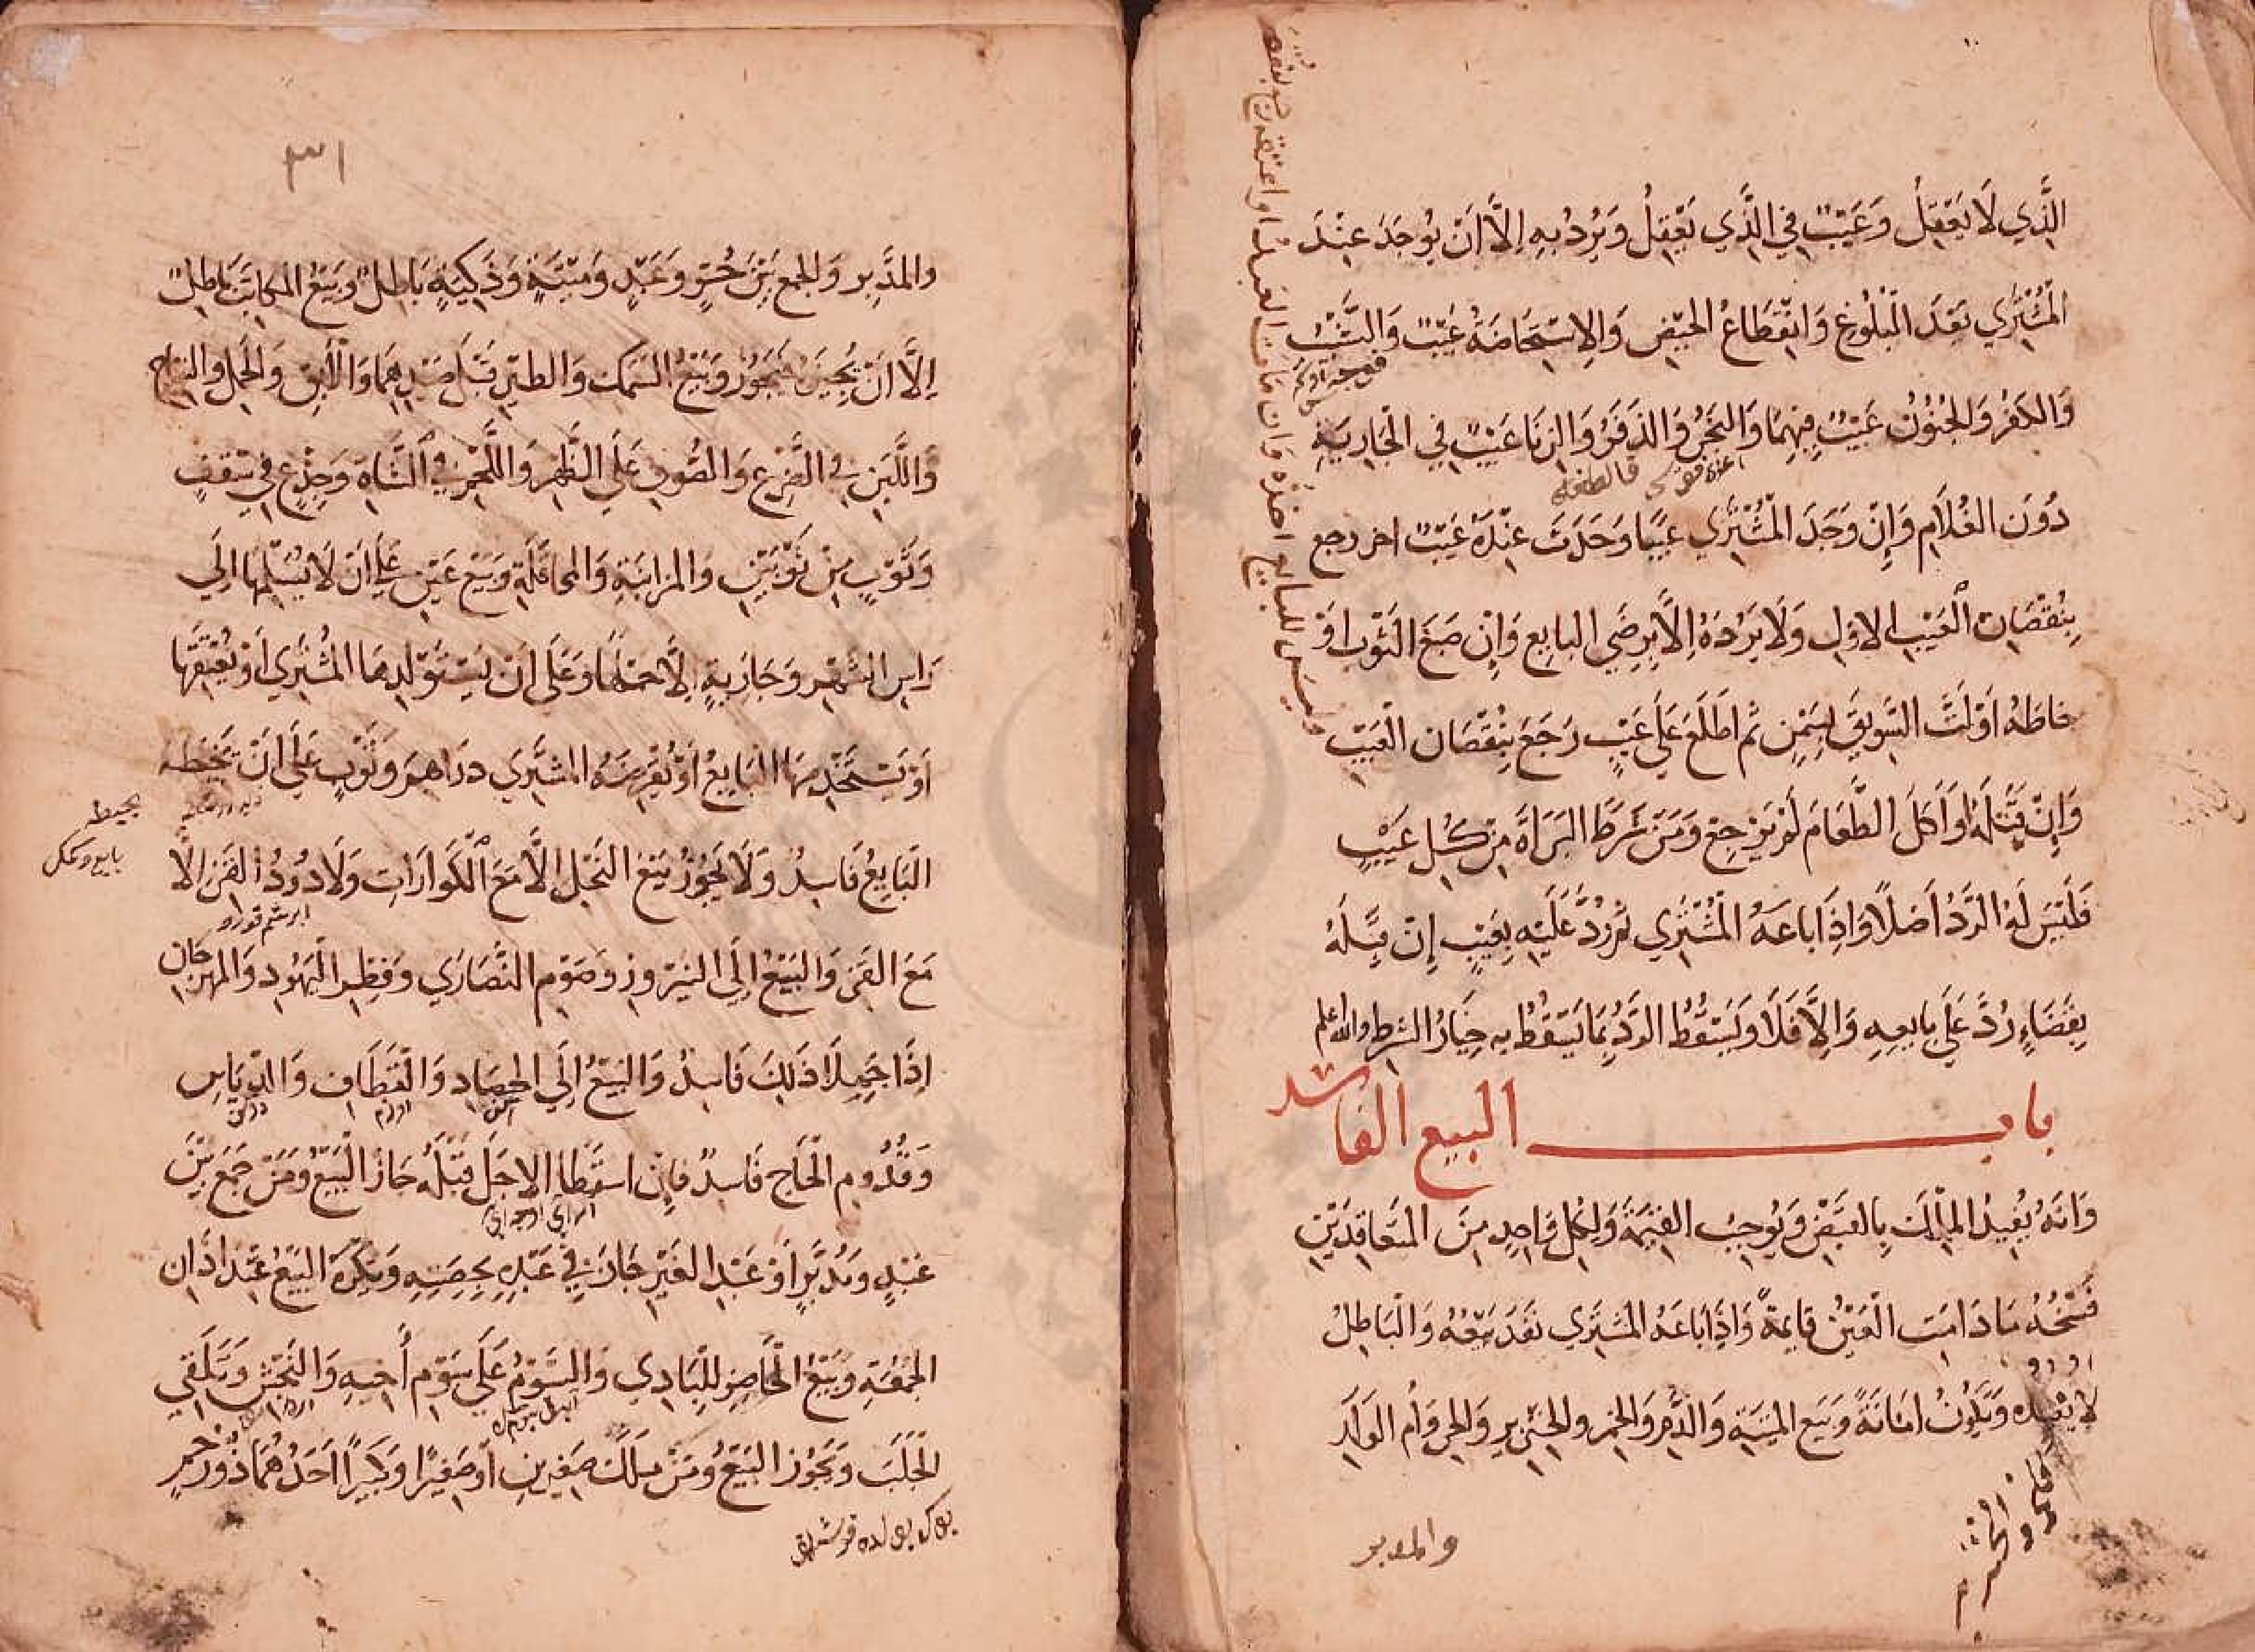 الَّذِي لَا يَعْقِلُ وَعَيْبٌ فِي الَّذِي يَعْقِلُ وَيُرَدُّ بِهِ إِلَّا أَنْ يُوجَدَ عِنْدَ
الْمُشْتَرِي بَعْدَ الْبُلُوغِ وَانْقِطَاعُ الْحَيْضِ وَالِاسْتِحَاضَةُ عَيْبٌ وَالشَّيْبُ
وَالكُفْرُ وَالْجُنُونُ عَيْبٌ فِيهِمَا وَالْبَخَرُ وَالذَّفَرُ وَالزِّنَا عَيْبٌ فِي الْجَارِيَةِ
دُونَ الْغُلَامِ وَإِنْ وَجَدَ الْمُشْتَرِي عَيْبًا وَحَدَثَ عِنْدَهُ عَيْبٌ اخر رجع
بِنُقْصَانِ الْعَيْبِ الاول وَلَا يَرُدُّهُ إِلَّا بِرِضَى البَايِعِ وَإِنْ صَبَغَ الثَّوْبَ اوْ
خَاطَهُ اَوْ لَتَّ السَّوِيقَ بِسَمْنٍ ثُمَّ اطَّلَعَ عَلَى عَيْبٍ رَجَعَ بِنُقْصَانِ الْعَيْبِ
وَإِنْ قَتَلَهُ اَوْ اَكَلَ الطَّعَامَ لَمْ يَرْجِعْ وَمَنْ شَرَطَ البَرَاةَ مِنْ كُلِّ عَيْبٍ
فَلَيْسَ لَهُ الرَّدُّ أَصْلًا وَاِذَا بَاعَهُ الْمُشْتَرِي ثُمَّ رُدَّ عَلَيْهِ بِعَيْبٍ إِنْ قَبِلَهُ
بِقَضَاءٍ رُدَّ عَلَى بَايِعِهِ وَإِلَّا فَلَا وَيَسْقُطُ الرَّدُّ بِمَا يَسْقُطُ بِهِ خِيَارُ الشَّرطِ والله اعلم
باب البيع الفاسد
وَانَّهُ يُفِيدُ المِلْكَ بِالقَبْضِ وَيُوجِبُ القِيْمَةَ وَلِكُلِّ وَاحِدٍ مِنَ المُتَعَاقِدَيْنِ
فَسْخُهُ مَا دَامَتِ الْعَيْنُ قَايِمَةً وَاِذَا بَاعَهُ المُشْتَرِي نَفَذَ بَيْعُهُ وَالْبَاطِلُ
لَا يُفِيدُه وَيَكُونُ امَانَةً وَبَيْعُ المَيْتَةِ وَالدَّمِ وَالخَمْرِ والخِنْزِيرِ وَالحُرِّ وَأُمِّ الوَلَدِ
والمدبر
٣١
والمدَبَّرِ وَالجَمْعُ بَيْنَ حُرٍّ وَعَبْدٍ وَمَيْتَةٍ وَذَكِيَّةٍ بَاطِلٌ وَبَيْعُ المُكَاتَبِ بَاطِلٌ
اِلَّا اَنْ يُجِيزَهُ فَيَجُوزُ وَبَيْعُ السَّمَكِ وَالطَّيْرِ قَبْلَ صَيْدِهِمَا وَالْآبِقِ وَالحَمْلِ والنتاج
وَاللَّبَنِ فِي الضَّرْعِ وَالصُّوفِ عَلَى الظَّهْرِ وَاللَّحْمِ فِي الشَّاةِ وَجِذْعٍ فِي سَقْفٍ
وَثَوْبٍ مِنْ ثَوْبَيْنِ وَالمُزَابَنَةِ وَالمُحَاقَلَةِ وَبَيْعُ عَيْنٍ عَلَى اَنْ لَا يُسَلِّمَهَا اِلَى
رَاسِ الشَّهْرِ وَجَارِيَةٍ اِلَّا حَمْلَهَا وَعَلَى اَنْ يَسْتَوْلِدَهَا المُشْتَرِي أَوْ يُعْتِقَهَا
أَوْ يَسْتَخْدِمَهَا البَايِعُ أَوْ يُقْرِضَهُ المُشْتَرِي دَرَاهِمَ وَثَوْبٍ عَلَى اَنْ يَخِيطَهُ
البَايِعُ فَاسِدٌ وَلَا يَجُوزُ بَيْعُ النَّحْلِ اِلَّا مَعَ الكُوَّارَاتِ وَلَا دُودِ القَزِّ اِلَّا
مَعَ القَزِّ وَالبَيْعُ اِلَى النَّيْرُوزِ وَصَوْمِ النَّصَارَى وَفِطْرِ الْيَهُودِ وَالمِهْرَجَان
اِذَا جَهِلَا ذَلِكَ فَاسِدٌ وَالبَيْعُ اِلَى الحَصَادِ وَالْقِطَافِ وَالدِّيَاسِ
وَقُدُومِ الْحَاجِّ فَاسِدٌ فَإِنْ اسْقَطَا الاجَلَ قَبْلَهُ جَازَ الْبَيْعُ وَمَنْ جَمَعَ بَيْنَ
عَبْدٍ وَمُدَبَّرٍ أَوْ عَبْدِ الغَيْرِ جَازَ فِي عَبْدِهِ بِحِصَّتِهِ وَيُكْرَهُ البَيْعُ عِنْدَ اذَانِ
الجُمْعَةِ وَبَيْعُ الْحَاضِرِ لِلْبَادِي وَالسَّوْمُ عَلَى سَوْمِ أَخِيهِ وَالنَّجْشُ وَتَلَقِّي
الْجَلَبِ وَيَجُوزُ البَيْعُ وَمَنْ مَلَكَ صَغِيرَيْنِ اَوْ صَغِيرًا وَكَبِيرًا اَحَدُهُمَا ذُو رَحِمٍ